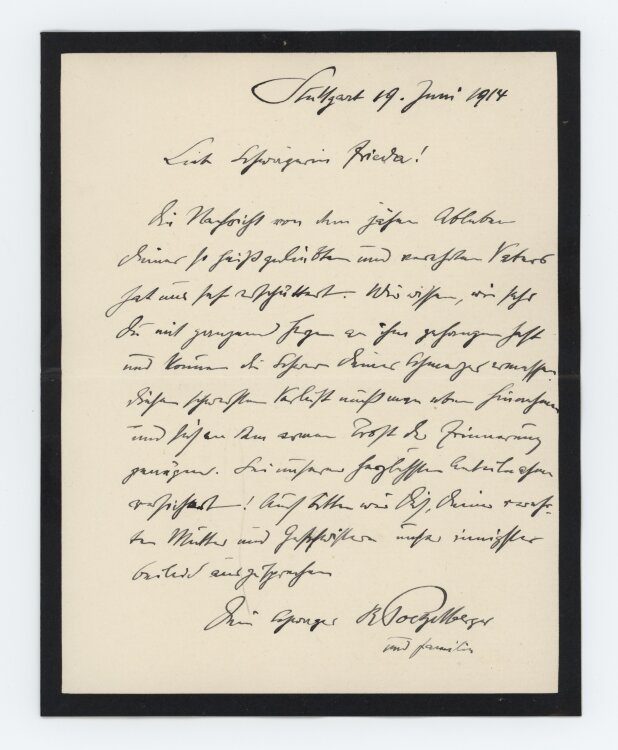 Stuttgart 19. Juni 1914
Liebe Schwägerin Frieda!
Die Nachricht von dem jähen Ableben
Deines so heißgeliebten und verehrten Vaters
hat uns sehr erschüttert. Wir wissen, wie sehr
Du mit ganzem Herzen an ihm gehangen hast
und können die Schwere Deines Schmerzes ermessen.
Diesen schwersten Verlust muß man eben hinnehmen
und sich an dem armen Trost der Erinnerung
genügen. Sei unserer herzlichsten Anteilnahme
versichert! Auch bitten wir Dich, Deiner verehr-
ten Mutter und Geschwistern unser innigstes
Beileid auszusprechen
Dein Schwager R Poetzelberger
und Familie